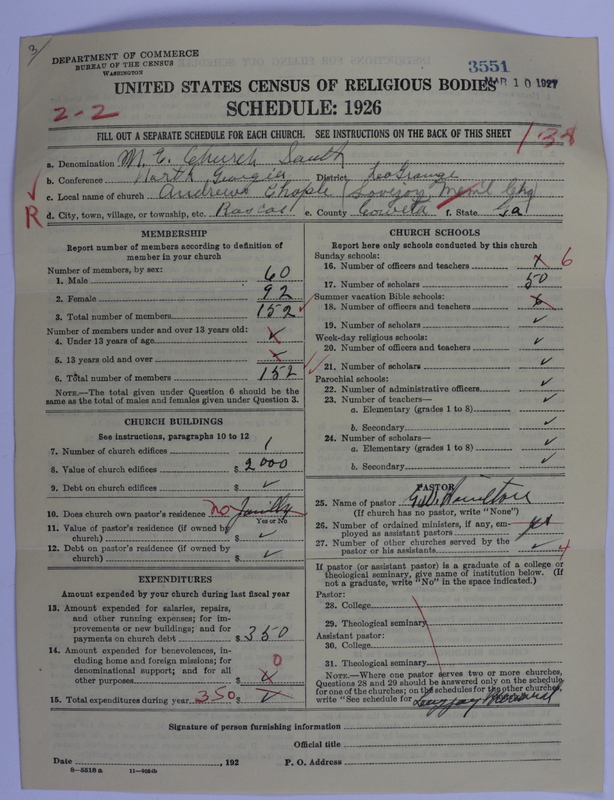 3
DEPARTMENT OF COMMERCE
BUREAU OF THE CENSUS
WASHINGTON
3551
MAR 10 1927
UNITED STATES CENSUS OF RELIGIOUS BODIES
SCHEDULE: 1926
2-2
FILL OUT A SEPARATE SCHEDULE FOR EACH CHURCH. SEE INSTRUCTIONS ON THE BACK OF THIS SHEET
138
a. Denomination M. E. Church South
b. Conference North Georgia District LaGrange
c. Local name of church Andrews Chaple (Lovejoy Meml Chg
R
d. City, town, village, or township, etc. Roscoe e. County Coweta f. State Ga
MEMBERSHIP
Report number of members according to definition of
member in your church
Number of members, by sex:
1. Male 60
2. Female 92
3. Total number of members 152
Number of members under and over 13 years old:
4. Under 13 years of age
5. 13 years old and over
6. Total number of members 152
NOTE.—The total given under Question 6 should be
same as the total of males and females given under Question 3.
CHURCH BUILDINGS
See instructions, paragraphs 10 to 12
7. Number of church edifices 1
8. Value of church edifices $ 2000
9. Debt on church edifices $ ✓
10. Does church own pastor's residence no
Yes or No
11. Value of pastor's residence (if owned by
church) $ ✓
12. Debt on pastor's residence (if owned by
church) $ ✓
EXPENDITURES
Amount expended by your church during last fiscal year
13. Amount expended for salaries, repairs,
and other running expenses; for im-
provements or new buildings; and for
payments on church debt $ 350
14. Amount expended for benevolences, in-
cluding home and foreign missions; for
denominational support; and for all
other purposes $ 0
15. Total expenditures during year 350 $
CHURCH SCHOOLS
Report here only schools conducted by this church
Sunday schools:
16. Number of officers and teachers 6
17. Number of scholars 50
Summer vacation Bible schools:
18. Number of officers and teachers
19. Number of scholars ✓
Week-day religious schools:
20. Number of officers and teachers ✓
21. Number of scholars ✓
Parochial schools:
22. Number of administrative officers ✓
23. Number of teachers—
a. Elementary (grades 1 to 8)
b. Secondary ✓
24. Number of scholars—
a. Elementary (grades 1 to 8) ✓
b. Secondary ✓
PASTOR
25. Name of pastor Hamilton
(If church has no pastor, write "None")
26. Number of ordained ministers, if any, em-
ployed as assistant pastors yes
27. Number of other churches served by the
pastor or his assistants ✓ 4
If pastor (or assistant pastor) is a graduate of a college or
theological seminary, give name of institution below. (If
not a graduate, write "No" in the space indicated.)
Pastor:
28. College
29. Theological seminary
Assistant pastor:
30. College
31. Theological seminary
NOTE.—Where one pastor serves two or more churches,
Questions 28 and 29 should be answered only on the schedule
for one of the churches; on the schedules for the other churches,
write "See schedule for Lovejoy Memorial
Signature of person furnishing information
Official title
Date , 192 P. O. Address
8—5518 a 11—9084b